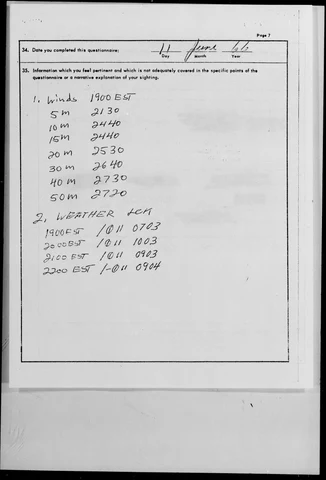 Page 7
34. Date you completed this questionnaire: 11 June 66
Day Month Year
35. Information which you feel pertinent and which is not adequately covered in the specific points of the
questionnaire or a narrative explanation of your sighting.
1. Winds 1900 EST
5 m 2130
10 m 2440
15 m 2440
20 m 2530
30 m 2640
40 m 2730
50 m 2720
2. WEATHER LCK
1900 EST /⦶11 0703
2000 EST /⦶11 1003
2100 EST /⦶11 0903
2200 EST /-⦶11 0904